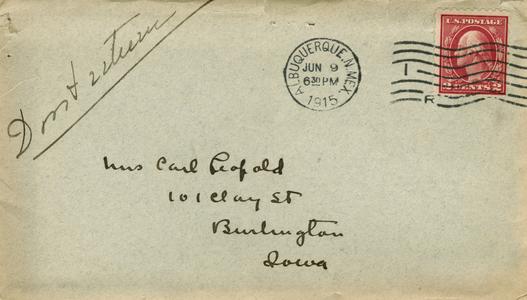 Don't return
U.S. POSTAGE
2 CENTS 2
ALBUQUERQUE, N. MEX.
JUN 9
6 30 PM
1915
I
R
Mrs Carl Leopold
101 Clay St
Burlington
Iowa